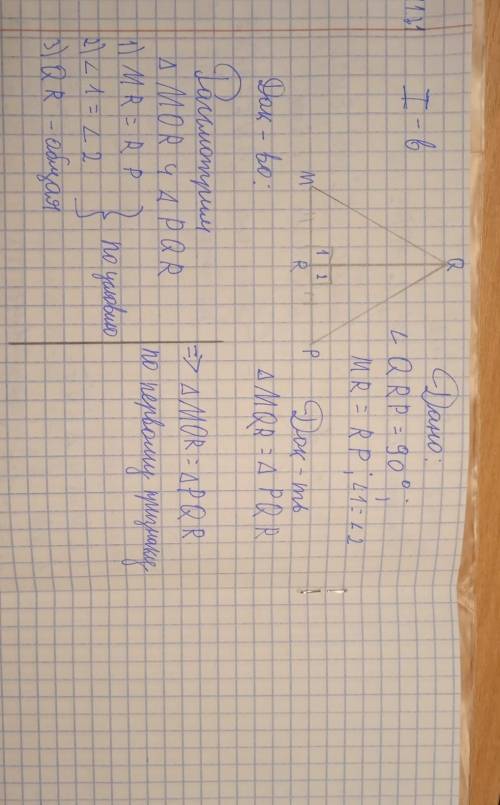 I-в
Дано:
Q
∠QRP = 90°;
MR = RP; ∠1=∠2
1 2
M R P
Док-ть
ΔMQR = ΔPQR
Док-во:
Рассмотрим
ΔMQR и ΔPQR
1) MR = RP
2) ∠1 = ∠2 } по условию
3) QR - общая
=> ΔMQR = ΔPQR
по первому признаку